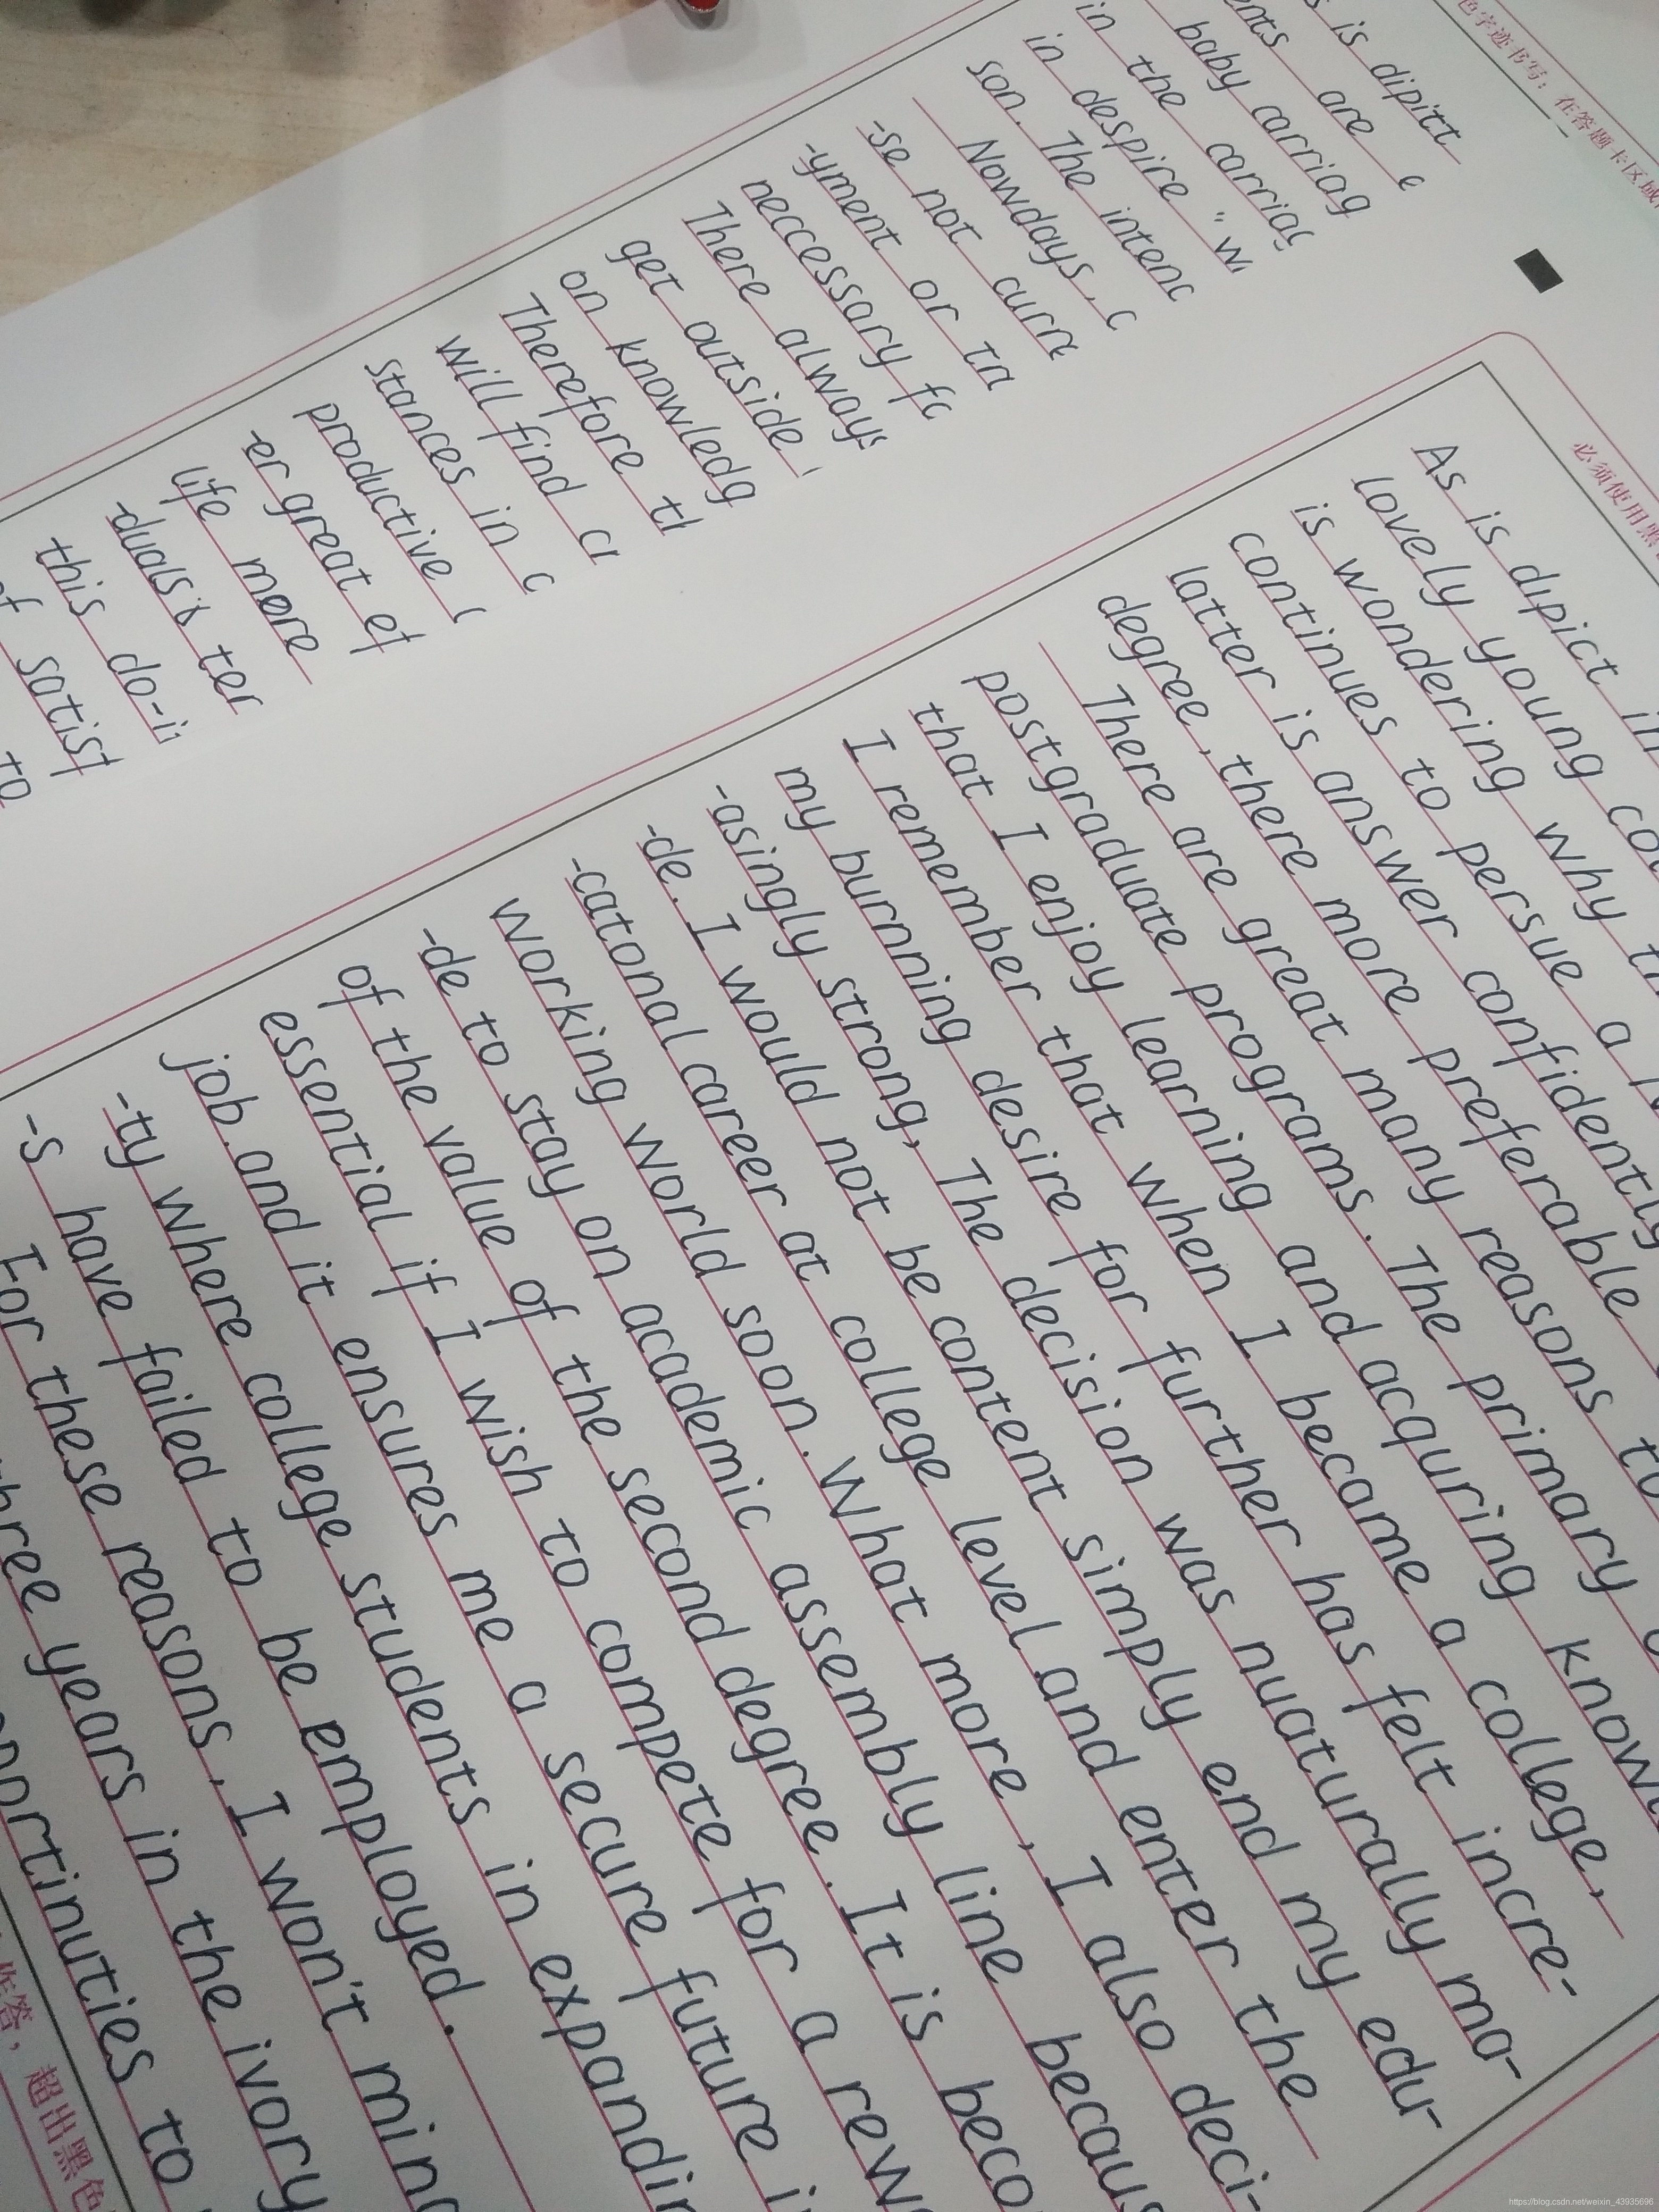 色字迹书写: 在答题卡区域
is dipict
are
baby
in the
in despire "
son. The
Nowdays,
-se not
-yment or
neccessary
There always
get outside
on
Therefore
will find
stances in
productive
-er great
life more
-duals
this do-
必须使用黑
As is dipict
lovely young
is wondering why
continues to persue a
latter is answer confidently
degree, there more preferable
There are great many reasons to
postgraduate programs. The primary
that I enjoy learning and acquring
I remember that when I became a college,
my burnning desire for further has felt incre-
-asingly strong, The decision was nuaturally ma-
-de. I would not be content simply end my edu-
-catonal career at college level and enter the
working world soon. What more, I also deci-
-de to stay on academic assembly line
of the value of the second degree. It is
essential if I wish to compete for a
job. and it ensures me a secure future
-ty where college students in
-s have failed to be employed.
For these reasons, I won't
years in the ivory
to
作答, 超出黑色
https://blog.csdn.net/weixin_43935696